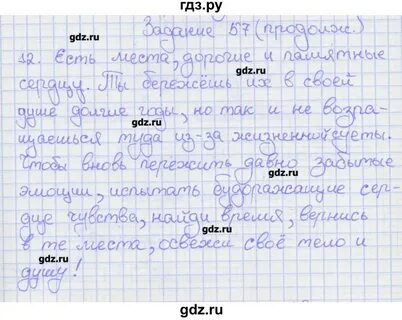 гдз.ру
Задание 57 (продолж.)
12. Есть места, дорогие и памятные
сердцу. Ты бережёшь их в своей
душе долгие годы, но так и не возвра-
щаешься туда из-за жизненной суеты.
Чтобы вновь пережить давно забытые
эмоции, испытать будоражащие сер-
дце чувства, найди время, вернись
в те места, освежи своё тело и
душу!
gdz.ru
gdz.ru
gdz.ru
gdz.ru
gdz.ru
gdz.ru
gdz.ru
gdz.ru